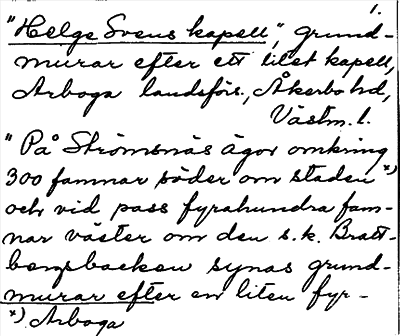 1.
"Helge Svens kapell", grund-
murar efter ett litet kapell,
Arboga landsförs., Åkerbo hd,
Västm. l.
"På Strömsnäs ägor omkring
300 famnar söder om staden x)
och vid pass fyrahundra fam-
nar väster om den s.k. Bratt-
bergsbacken synas grund-
murar efter en liten fyr-
x) Arboga